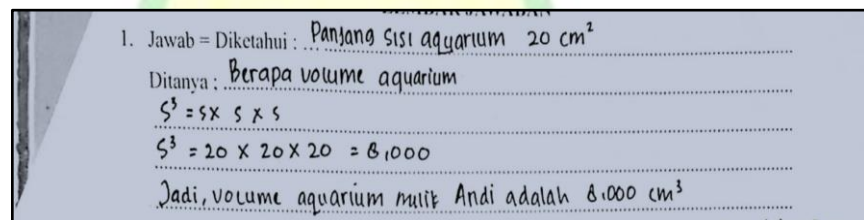 1. Jawab = Diketahui : Panjang sisi aquarium 20 cm²
Ditanya : Berapa volume aquarium
S³ = s x s x s
S³ = 20 x 20 x 20 = 8,000
Jadi, volume aquarium milik Andi adalah 8.000 cm³